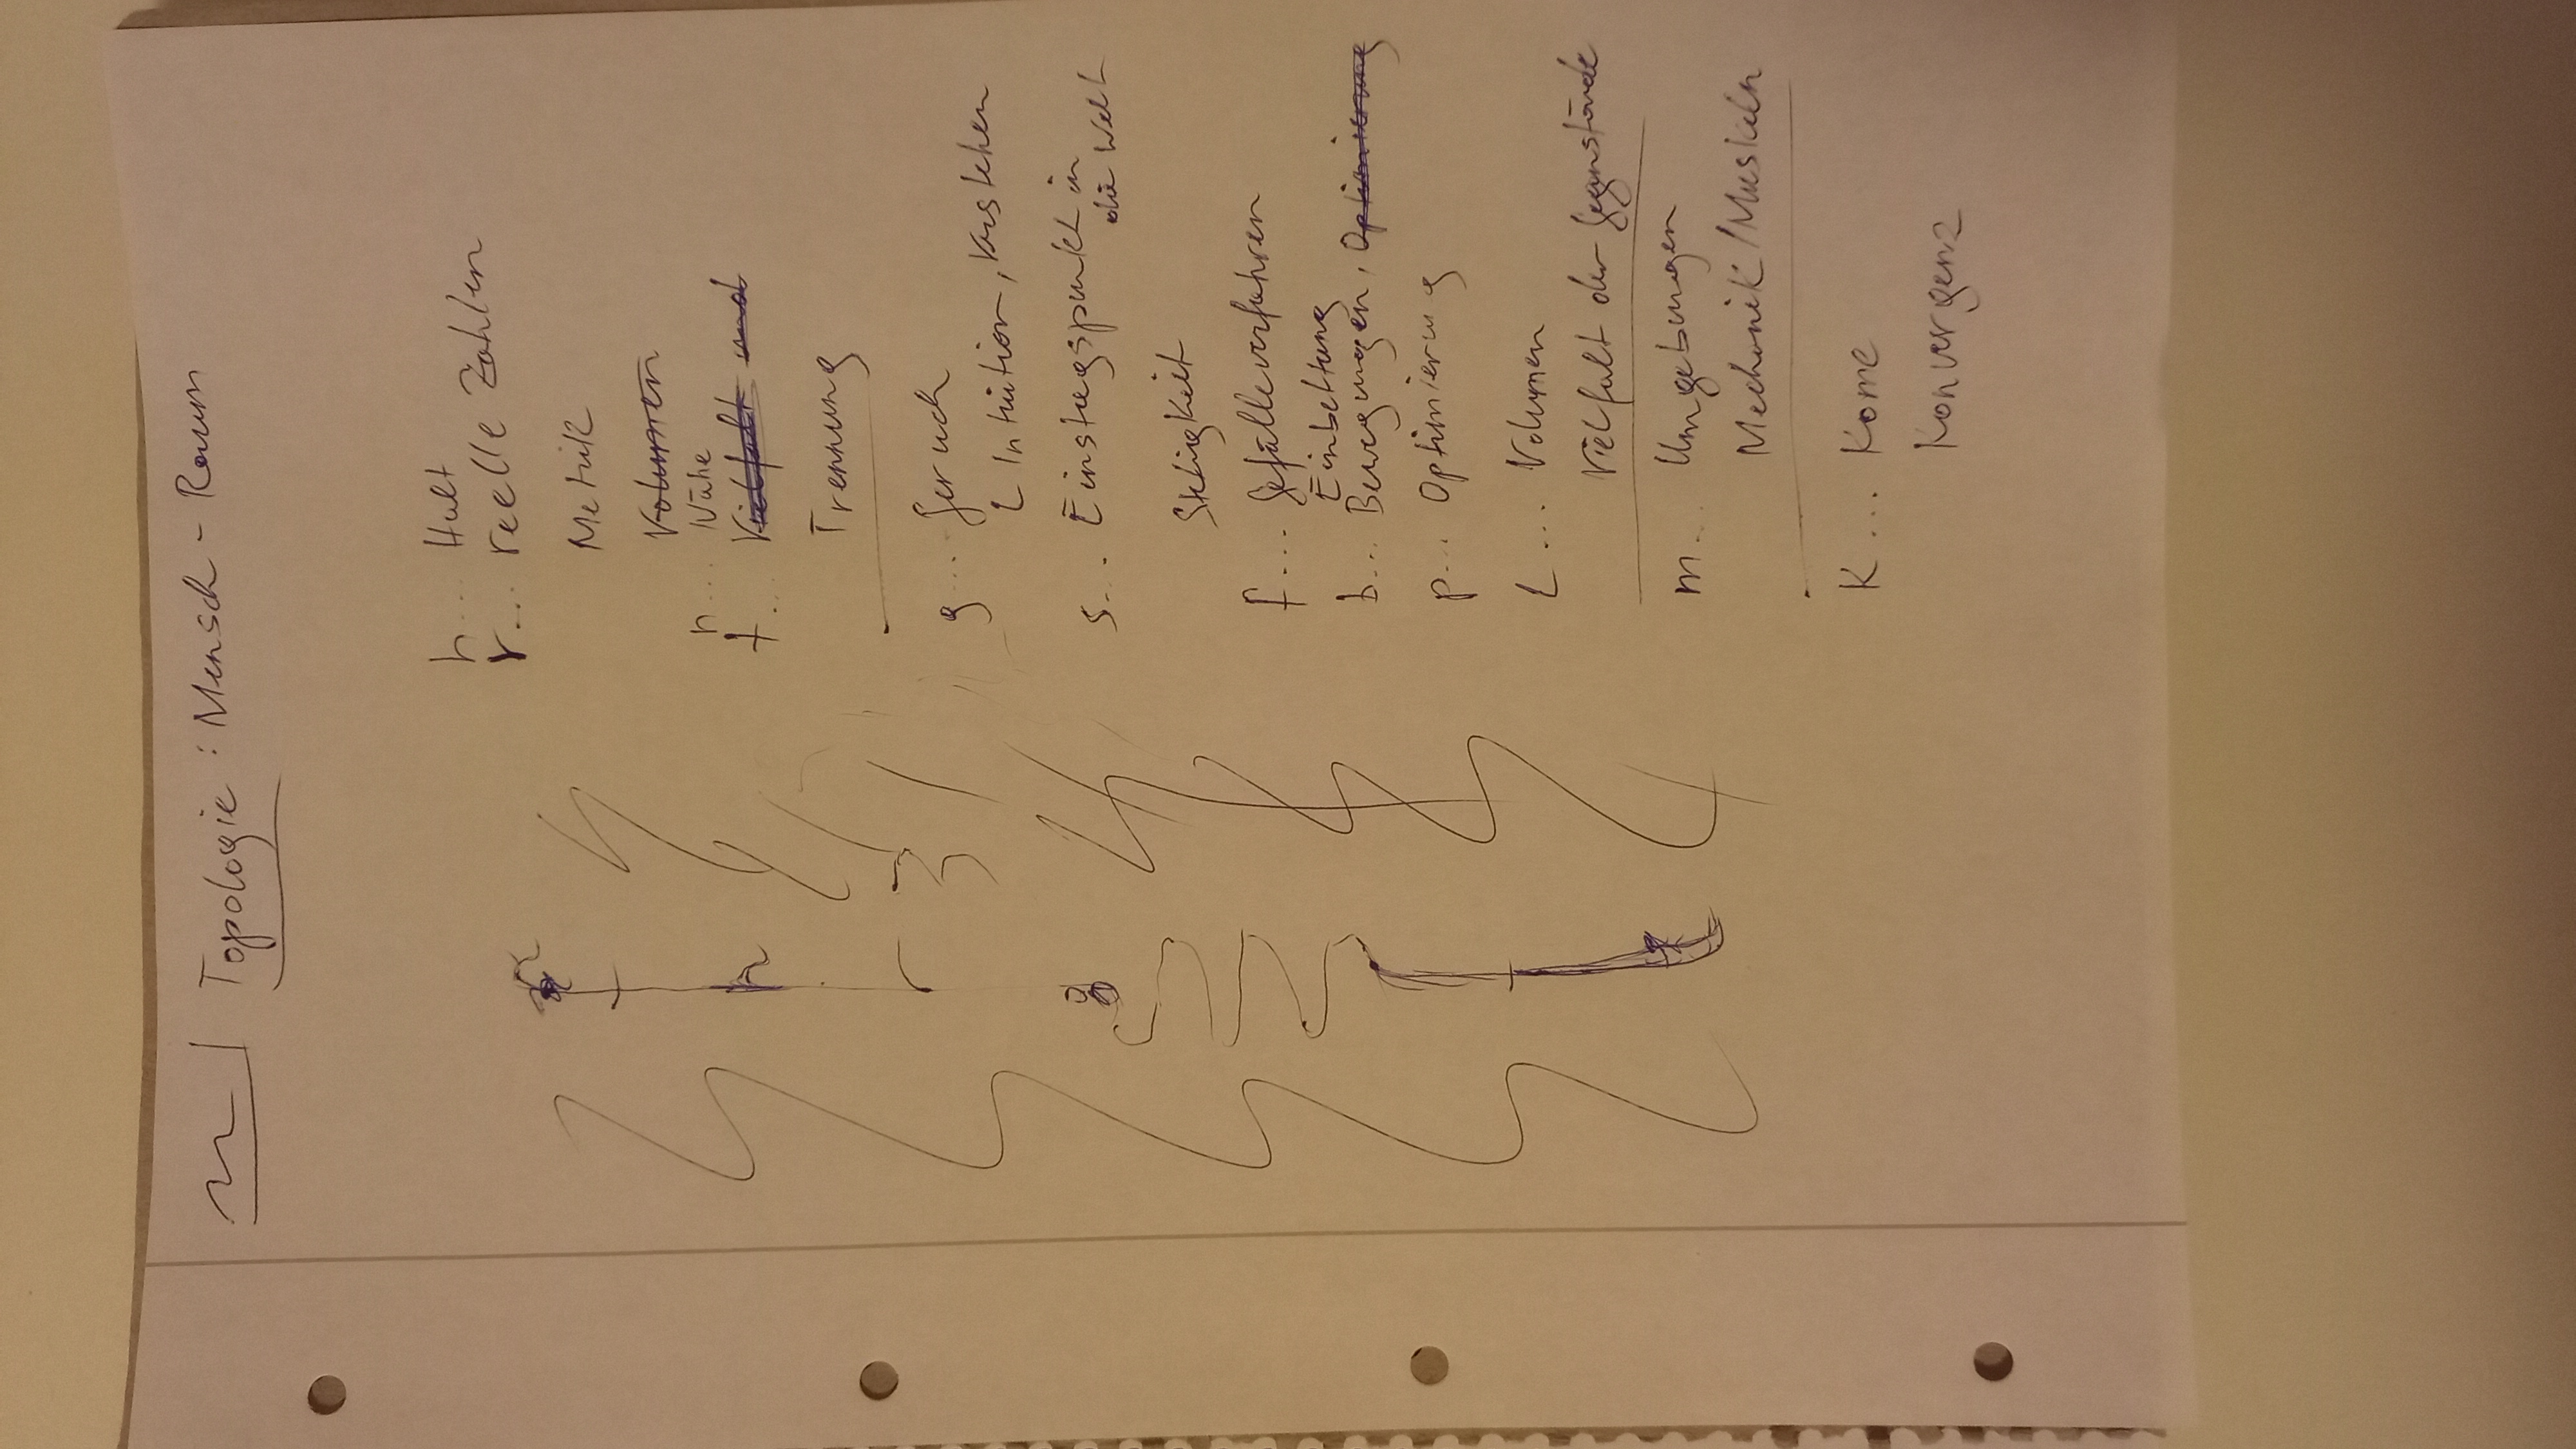 Topologie: Mensch - Raum
h... Halt
r... reelle Zahlen
Metrik
Volumen
n... Nähe
t... Vielfalt und
Trennung
g... Geruch
L Intuition, Verstehen
s... Einstiegspunkt in
die Welt
Stetigkeit
f... Gefälleverfahren
Einbettung
b... Bewegungen, Optimierung
p... Optimierung
l... Volumen
Vielfalt der Gegenstände
m... Umgebungen
Mechanik/Muskeln
K... Kome
Konvergenz